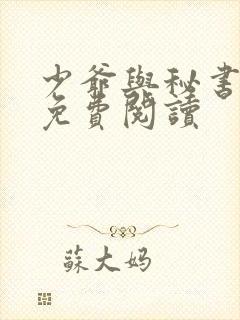 少爺與秘書
免費閱讀
蘇大妈